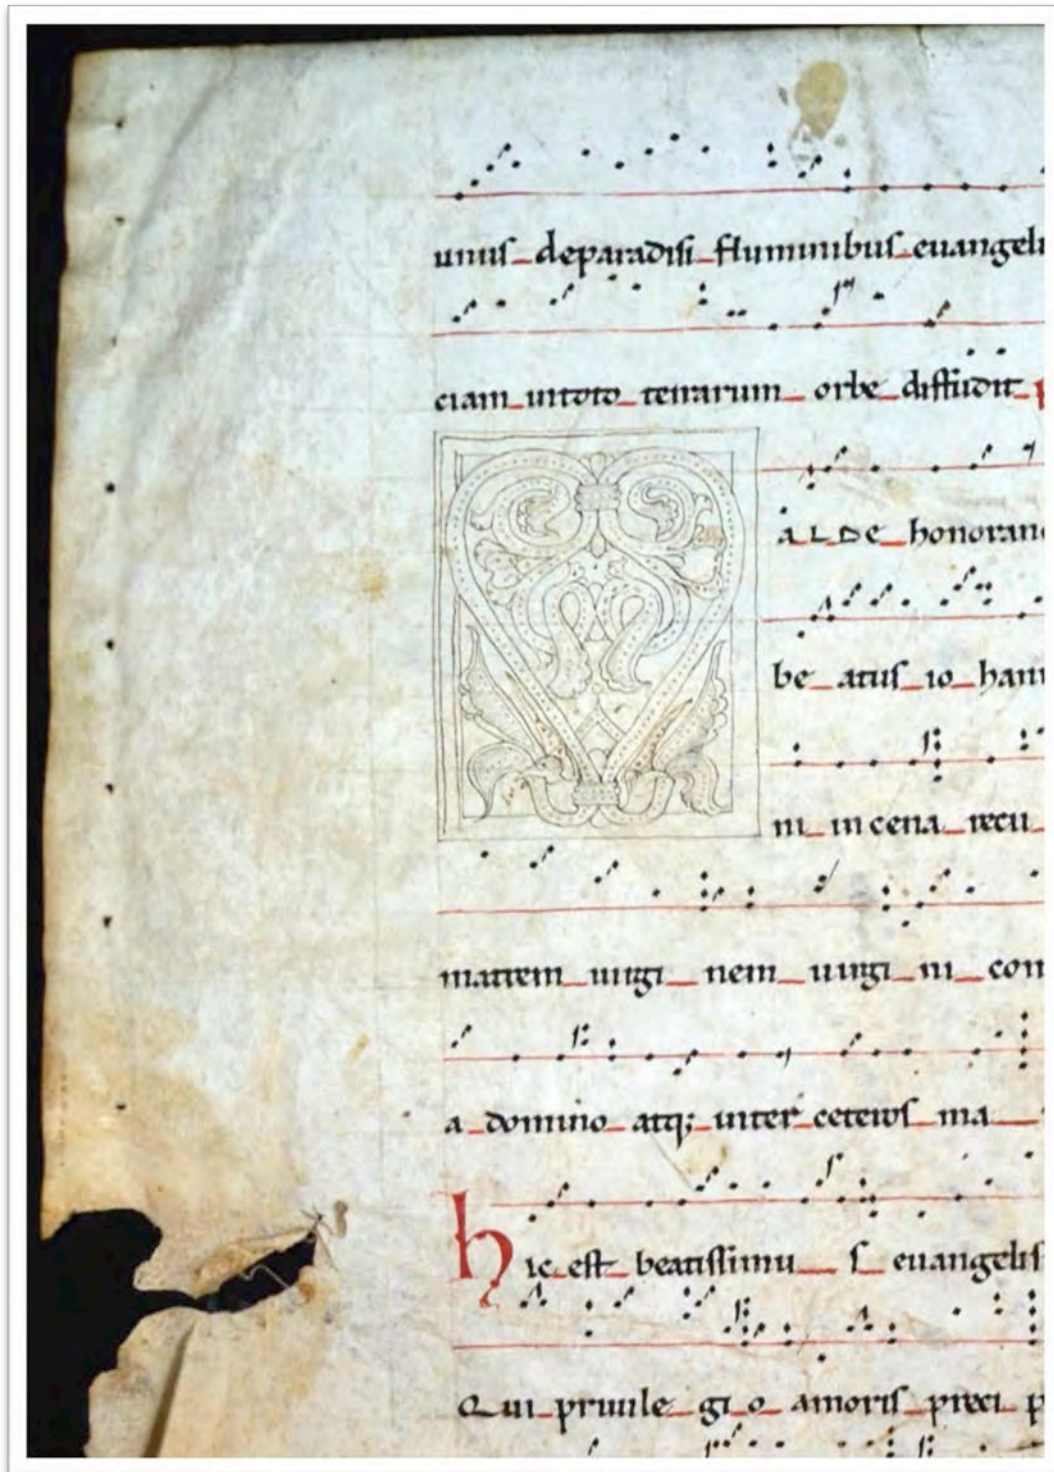 unus deparadisi fluminibus euangeli
ciam intoto terrarum orbe diffudit
VALDE honoran
be atus io hann
ni in cena recu
matrem uirgi nem uirgi ni com
a domino atq; inter ceteros ma
hic est beatissimu s euangelis
Qui priuile gi o amoris preci p